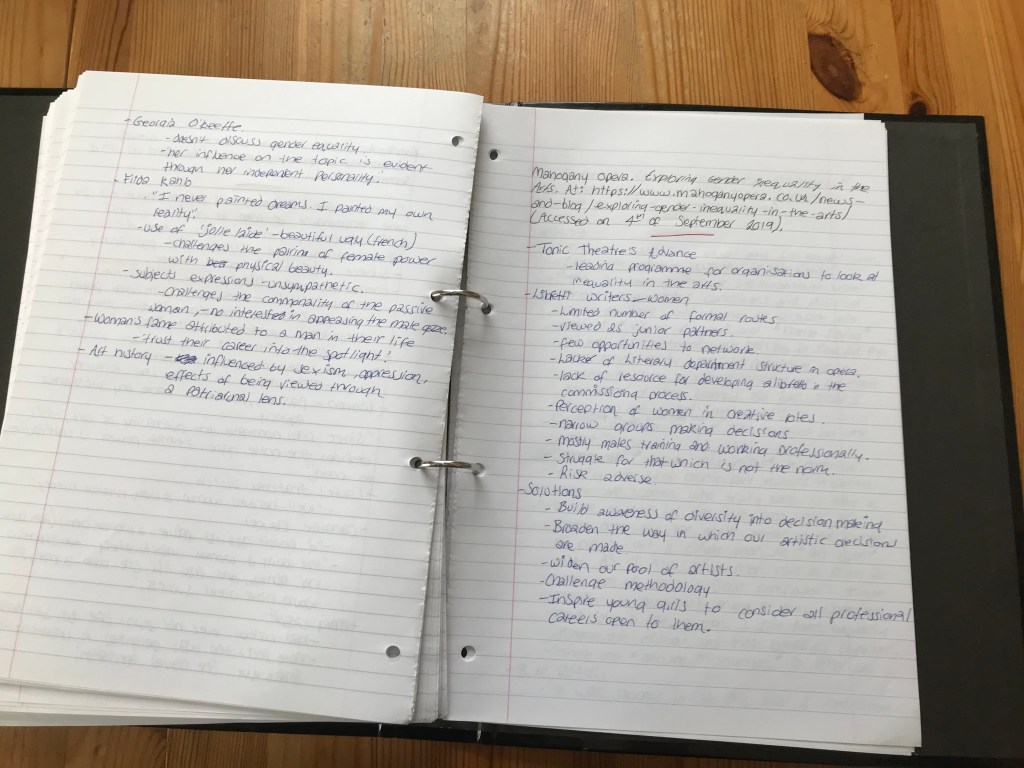 - Georgia O'keeffe.
- doesn't discuss gender equality.
- her influence on the topic is evident
though her independent personality.
- Frida Kahlo
"I never painted dreams. I painted my own
reality".
- use of 'jolie laide' - beautiful ugly (french)
- challenges the pairing of female power
with physical beauty.
- subjects expressions - unsympathetic.
- Challenges the commonality of the passive
woman, - no interested in appeasing the male gaze.
- Woman's fame attributed to a man in their life
- 'trust their career into the spotlight'.
- Art history - influenced by sexism, oppression,
effects of being viewed through
a patriarchal lens.
Mahogany opera. Exploring Gender Inequality in the
Arts. At: https://www.mahoganyopera.co.uk/news-
and-blog/exploring-gender-inequality-in-the-arts/
(Accessed on 4th of September 2019).
- Tonic Theatre's Advance
- leading programme for organisations to look at
inequality in the arts.
- Libretti writers - women
- Limited number of formal routes
- viewed as junior partners.
- few opportunities to network.
- Lack of Literary department structure in opera.
- lack of resource for developing a libretto in the
commissioning process.
- Perception of women in creative roles.
- narrow groups making decisions
- mostly males training and working professionally.
- Struggle for that which is not the norm.
- Risk adverse.
- Solutions
- Build awareness of diversity into decision making
- Broaden the way in which our artistic decisions
are made
- widen our pool of artists.
- Challenge methodology
- Inspire young girls to consider all professional
careers open to them.